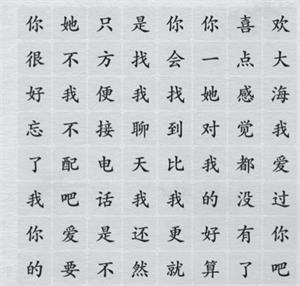 你她只是你你喜欢
很不方找会一点大
好我便我找她感海
忘不接聊到对觉我
了配电天比我都爱
我吧话我我的没过
你爱是还更好有你
的要不然就算了吧